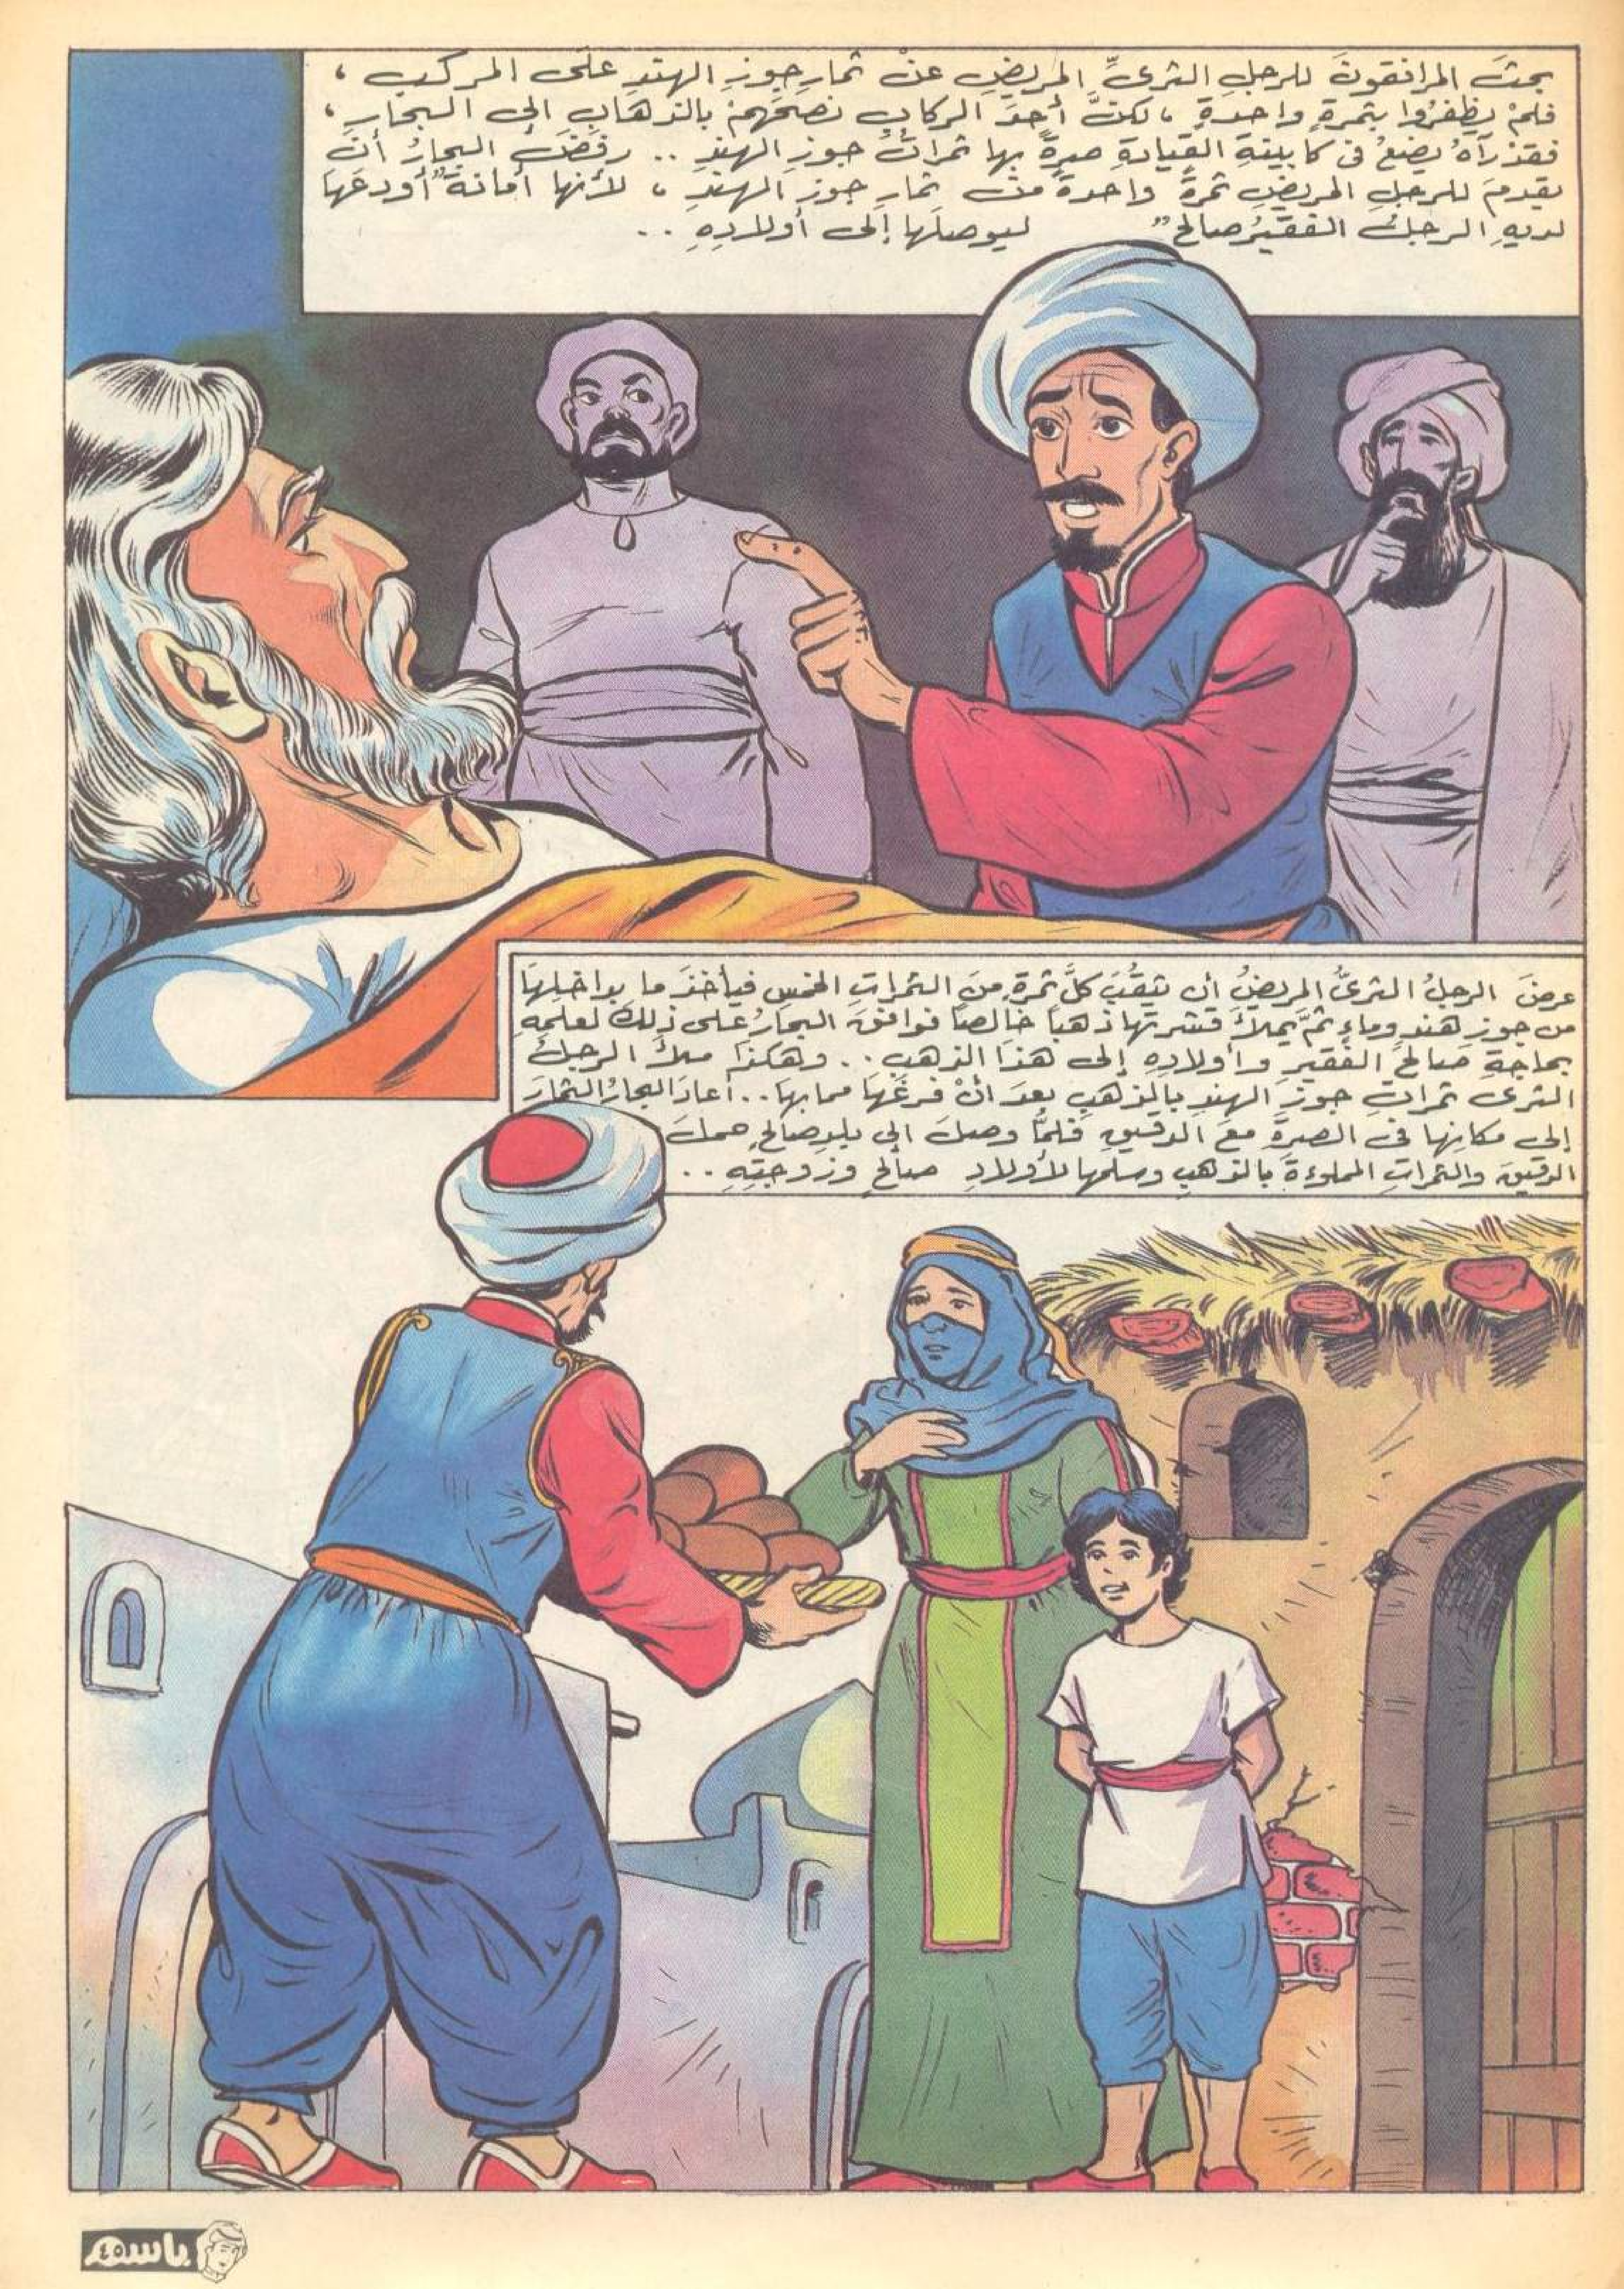 بحثَ المرافقونَ للرجلِ الثرىِّ المريضِ عنْ ثمارِ جوزِ الهندِ على المركبِ ،
فلمْ يظفرُوا بثمرةٍ واحدةٍ ، لكنَّ أحدَ الركابِ نصحَهمْ بالذهابِ إلى البحارِ ،
فقدْ رآهُ يضعُ فى كابينةِ القيادةِ صرةً بها ثمراتُ جوزِ الهندِ .. رفضَ البحارُ أنْ
يقدمَ للرجلِ المريضِ ثمرةً واحدةً منْ ثمارِ جوزِ الهندِ ، لأنها أمانةٌ "أودعَها
لديهِ الرجلُ الفقيرُ صالح" ليوصلَها إلى أولادِهِ ..
عرضَ الرجلُ الثرىُّ المريضُ أن يثقُبَ كلَّ ثمرةٍ منَ الثمراتِ الخمسِ فيأخذَ ما بداخلِهَا
من جوزِ هندٍ وماءٍ ثمَّ يملأَ قشرتَها ذهبًا خالصًا فوافقَ البحارُ على ذلِكَ لعلمِهِ
بحاجةِ صالحٍ الفقيرِ وأولادِهِ إلى هذَا الذهبِ .. وهكذَا ملأَ الرجلُ
الثرى ثمراتِ جوزِ الهندِ بالذهبِ بعدَ أنْ فرغَهَا مما بها .. أعادَ البحارُ الثمارَ
إلى مكانِها فى الصرةِ معَ الدقيقِ فلمَّا وصلَ إلى بلدِ صالحٍ حملَ
الدقيقَ والثمراتِ المملوءةَ بالذهبِ وسلمَها لأولادِ صالحٍ وزوجتِهِ ..
باسم
٤٥